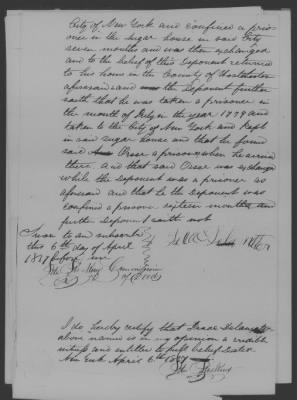 City of New York and confined a pris-
oner in the sugar house in said City
seven months and was then exchanged
and to the belief of this Deponent returned
to his home in the County of Westchester
aforesaid and the Deponent further
saith that he was taken a prisoner in
the month of July in the year 1779 and
taken to the City of New York and kept
in said sugar house and that he found
said a prisoner when he arrived
there. And that said was exchanged
while the Deponent was a prisoner as
aforesaid and that he the Deponent was
confined a prisoner eighteen months and
further Deponent saith not
Sworn to and subscribed
this 6th day of April
1837 before me
Commissioner
of Deeds
I do hereby certify that Isaac
above named is in my opinion a credible
witness and entitled to full belief. Dated
New York April 6th 1837